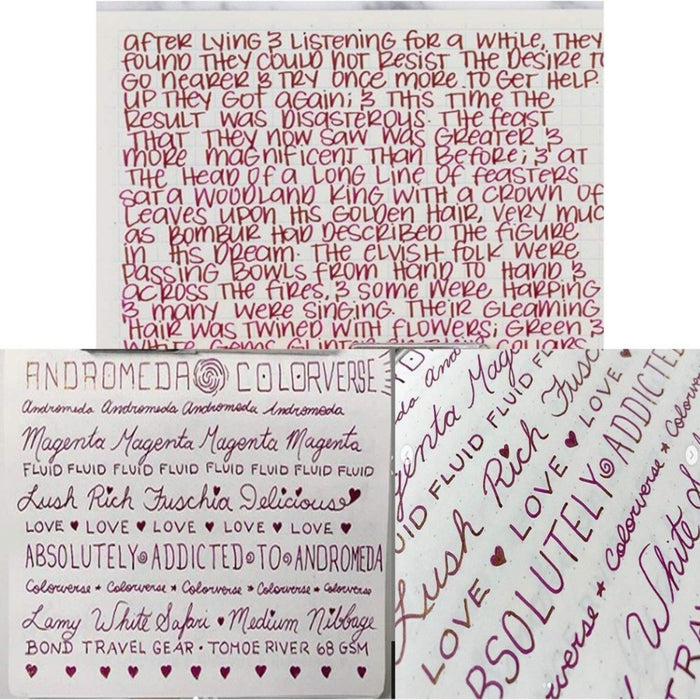 AFTER LYING & LISTENING FOR A WHILE, THEY
FOUND THEY COULD NOT RESIST THE DESIRE TO
GO NEARER & TRY ONCE MORE TO GET HELP.
UP THEY GOT AGAIN; & THIS TIME THE
RESULT WAS DISASTEROUS. THE FEAST
THAT THEY NOW SAW WAS GREATER &
MORE MAGNIFICENT THAN BEFORE; & AT
THE HEAD OF A LONG LINE OF FEASTERS
SAT A WOODLAND KING WITH A CROWN OF
LEAVES UPON HIS GOLDEN HAIR, VERY MUC
AS BOMBUR HAD DESCRIBED THE FIGURE
IN HIS DREAM. THE ELVISH FOLK WERE
PASSING BOWLS FROM HAND TO HAND &
ACROSS THE FIRES, & SOME WERE HARPING
& MANY WERE SINGING. THEIR GLEAMING
HAIR WAS TWINED WITH FLOWERS; GREEN &
WHITE GEMS COLLARS
ANDROMEDA COLORVERSE
Andromeda Andromeda Andromeda Andromeda
Magenta Magenta Magenta Magenta
FLUID FLUID FLUID FLUID FLUID FLUID FLUID FLUID
Lush Rich Fuschia Delicious♥
LOVE ♥ LOVE ♥ LOVE ♥ LOVE ♥ LOVE ♥
ABSOLUTELY ADDICTED TO ANDROMEDA
Colorverse * Colorverse * Colorverse * Colorverse * Colorverse
Lamy White Safari ♥ Medium Nibbage
BOND TRAVEL GEAR • TOMOE RIVER 68 GSM
♥ ♥ ♥ ♥ ♥ ♥ ♥ ♥ ♥ ♥ ♥
genta Mag
UID FLUID FLUID FLUID FL
Lush Rich Fusch
LOVE ♥ LOVE ♥ LOVE ♥
BSOLUTELY ADDICTED
verse * Colorverse * Color
White S